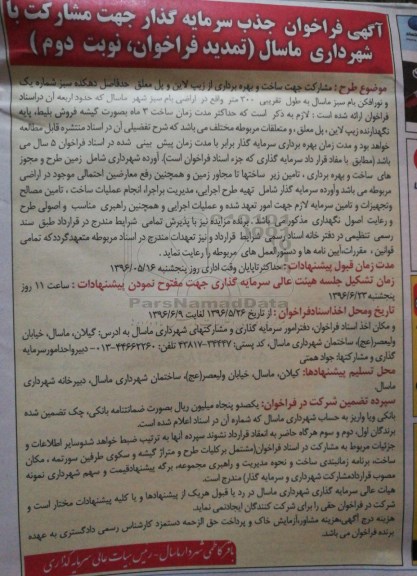 آگهی فراخوان جذب سرمایه گذار جهت مشارکت با
شهرداری ماسال (تمدید فراخوان، نوبت دوم)
موضوع طرح: مشارکت جهت ساخت و بهره برداری از زیپ لاین و پل معلق حدفاصل دهکده سبز شماره یک
و نورافکن بام سبز ماسال به طول تقریبی ۲۰۰ متر واقع در اراضی بام سبز شهر ماسال که حدود اربعه آن دراسناد
فراخوان ارائه شده است: لازم به ذکر است که حداکثر مدت زمان ساخت ۳ ماه بصورت گیشه فروش بلیط، پایه
نگهدارنده زیپ لاین، پل معلق، و متعلقات مربوطه مختلف می باشد که شرح تفصیلی آن در اسناد منتشره قابل مطالعه
خواهد بود و مدت زمان بهره برداری سرمایه گذار برابر با مدت زمان پیش بینی شده در اسناد فراخوان ۵ سال می
باشد (مطابق با مفاد قرار داد سرمایه گذاری که جزء اسناد فراخوان است). آورده شهرداری شامل زمین طرح و مجوز
های ساخت و بهره برداری، تامین زیر ساختها تا مجاور زمین و همچنین رفع معارضین احتمالی موجود در اراضی
مربوطه می باشد وآورده سرمایه گذار شامل تهیه طرح اجرایی، مدیریت براجرا، انجام عملیات ساخت، تامین مصالح
وتجهیزات و تامین سرمایه لازم جهت امور تعهد شده و عملیات اجرایی و همچنین راهبری مناسب و اصولی طرح
و رعایت اصول نگهداری مذکور می باشد. برنده مزایده نیز با پذیرش تمامی شرایط مندرج در قرارداد طبق سند
رسمی تنظیمی در دفتر خانه اسناد رسمی شرایط قرارداد و نیز تعهدات مندرج در اسناد مربوطه متعهدگردد که تمامی
قوانین، مقررات، آیین نامه ها و دستورالعمل های مربوطه را رعایت نماید.
مدت زمان قبول پیشنهادات: حداکثر تا پایان وقت اداری روز پنجشنبه
زمان تشکیل جلسه هیئت عالی سرمایه گذاری جهت مفتوح نمودن پیشنهادات: ساعت ۱۱ روز
پنجشنبه ۱۳۹۶/۶/۲۳
تاریخ ومحل اخذاسنادفراخوان: از تاریخ ۱۳۹۶/۵/۲۶ لغایت ۱۳۹۶/۶/۹
و مکان اخذ اسناد فراخوان، دفترامور سرمایه گذاری و مشارکتهای شهرداری ماسال به ادرس: گیلان، ماسال، خیابان
ولیعصر(عج)، ساختمان شهرداری ماسال، کد پستی: تلفن: ۰۱۳-۴۴۶۶۲۲۶۰ - دبیرواحدامورسرمایه
گذاری و مشارکتها: جواد همتی
محل تسلیم پیشنهادها: گیلان، ماسال، خیابان ولیعصر(عج)، ساختمان شهرداری ماسال، دبیرخانه شهرداری
ماسال.
سپرده تضمین شرکت در فراخوان: یکصدو پنجاه میلیون ریال بصورت ضمانتنامه بانکی، چک تضمین شده
بانکی ویا واریز به حساب شهرداری ماسال که شماره آن در اسناد اعلام شده است.
برندگان اول، دوم و سوم هرگاه حاضر به انعقاد قرارداد نشوند سپرده آنها به ترتیب ضبط خواهد شدوسایر اطلاعات و
جزئیات مربوط به مشارکت در اسناد فراخوان(مشتمل برکلیات طرح و متراژ گیشه و سکوی طرفین سورتمه، مکان
ساخت، برنامه زمانبندی ساخت و نحوه مدیریت و راهبری مجموعه، برگه پیشنهادقیمت و سهم شهرداری نمونه
مصوب قراردادمشارکت شهرداری و سرمایه گذار) مندرج است.
هیات عالی سرمایه گذاری شهرداری ماسال در رد یا قبول هریک از پیشنهادها و یا کلیه پیشنهادات مختار است و
شرکت در فراخوان حقی را برای شرکت کنندگان ایجادنمی نماید.
هزینه درج آگهی،هزینه مشاور،آزمایش خاک و پرداخت حق الزحمه دستمزد کارشناس رسمی دادگستری به عهده
برنده فراخوان می باشد.
شهردار ماسال - رئیس هیات عالی سرمایه گذاری
ParsNamadData